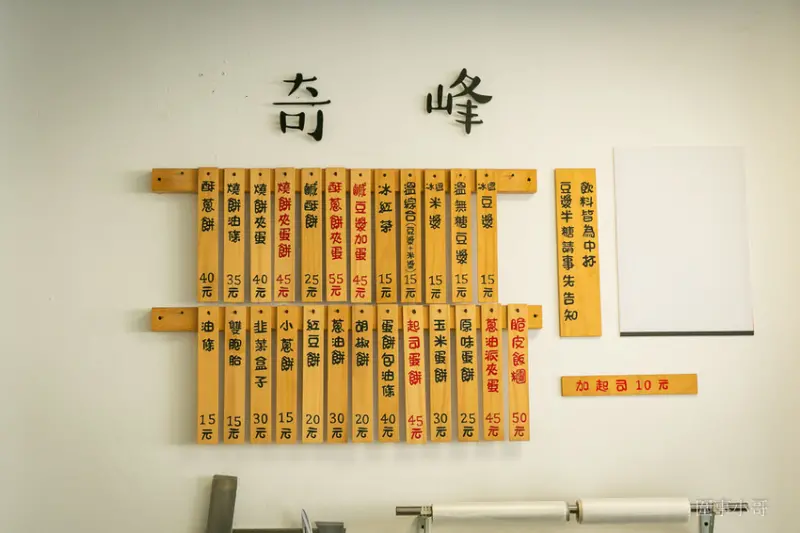 奇峰
飲料皆為中杯
豆漿半糖請事先告知
冰溫豆漿15元
溫無糖豆漿15元
冰溫米漿15元
溫綜合(豆漿+米漿)15元
冰紅茶15元
鹹豆漿加蛋45元
酥蔥餅夾蛋55元
鹹酥餅25元
燒餅夾蔥餅45元
燒餅夾蛋40元
燒餅油條35元
酥蔥餅40元
脆皮飯糰50元
蔥油派夾蛋45元
原味蛋餅25元
玉米蛋餅30元
起司蛋餅45元
蛋餅包油條40元
胡椒餅20元
蔥油餅30元
紅豆餅20元
小蔥餅15元
韭菜盒子30元
雙胞胎15元
油條15元
加起司10元